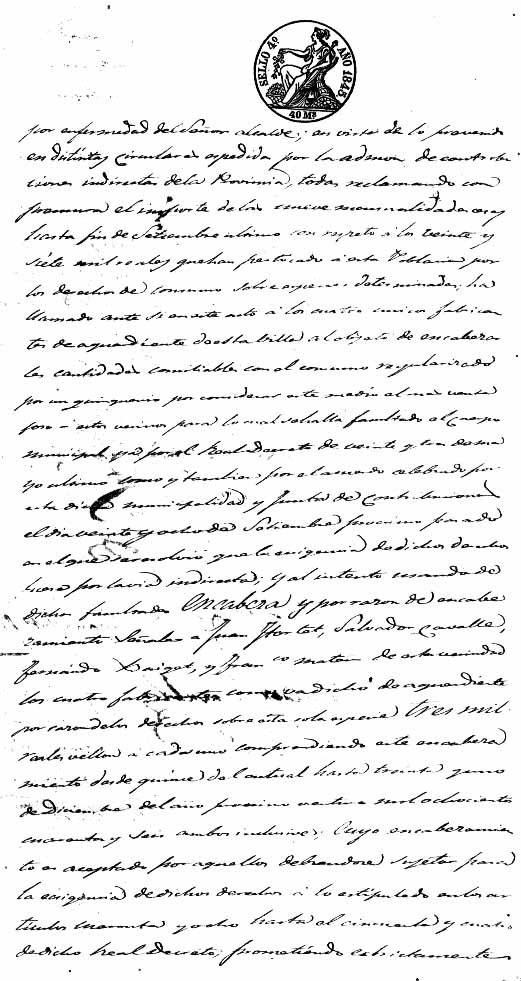 SELLO 4º AÑO 1845
40 Ms
por enfermedad del Señor alcalde; en vista de lo prevenido
en distintas circulares expedidas por la admon de contribu
ciones indirectas de la Provincia, todas reclamando con
premura el importe de las nueve mensualidades
hasta fin de Setiembre ultimo con respeto a los veinte y
siete mil reales que han pertocado a esta Poblacion por
los derechos de consumo sobre especies determinadas; ha
llamado ante si en este acto a los cuatro unicos fabrican
tes de aguardiente de esta Villa al objeto de encabezar
las cantidades con el consumo regularizado
por un quinquenio por considerar este medio el mas venta
joso a estos vecinos para lo cual se halla facultado el cuerpo
municipal ya por el Real Decreto de veinte y tres de ma
yo ultimo como y tambien por el acuerdo celebrado por
esta municipalidad y Junta de Contribuciones
el dia veinte y ocho de Setiembre proximo pasado
en el que se resolvió que la exigencia de dichos derechos
fuese por la via indirecta; y al intento usando de
dichas facultades Encabeza y por razon de encabe
zamiento Señala a Juan Hortet, Salvador Cavalle,
Fernando Daigot, y Franco Matas de esta vecindad
los cuatro fabricantes como va dicho de aguardiente
por razon de los derechos sobre esta sola especie tres mil
reales vellon a cada uno comprendiendo este encabeza
miento desde quince del actual hasta treinta y uno
de Diciembre del año proximo venturo mil ochocientos
cuarenta y seis ambos inclusive; Cuyo encabezamien
to es aceptado por aquellos debiendose sujetar para
la exigencia de dichos derechos a lo estipulado en los ar
ticulos cuarenta y ocho hasta el cincuenta y cuatro
de dicho Real Decreto; prometiendo estrictamente